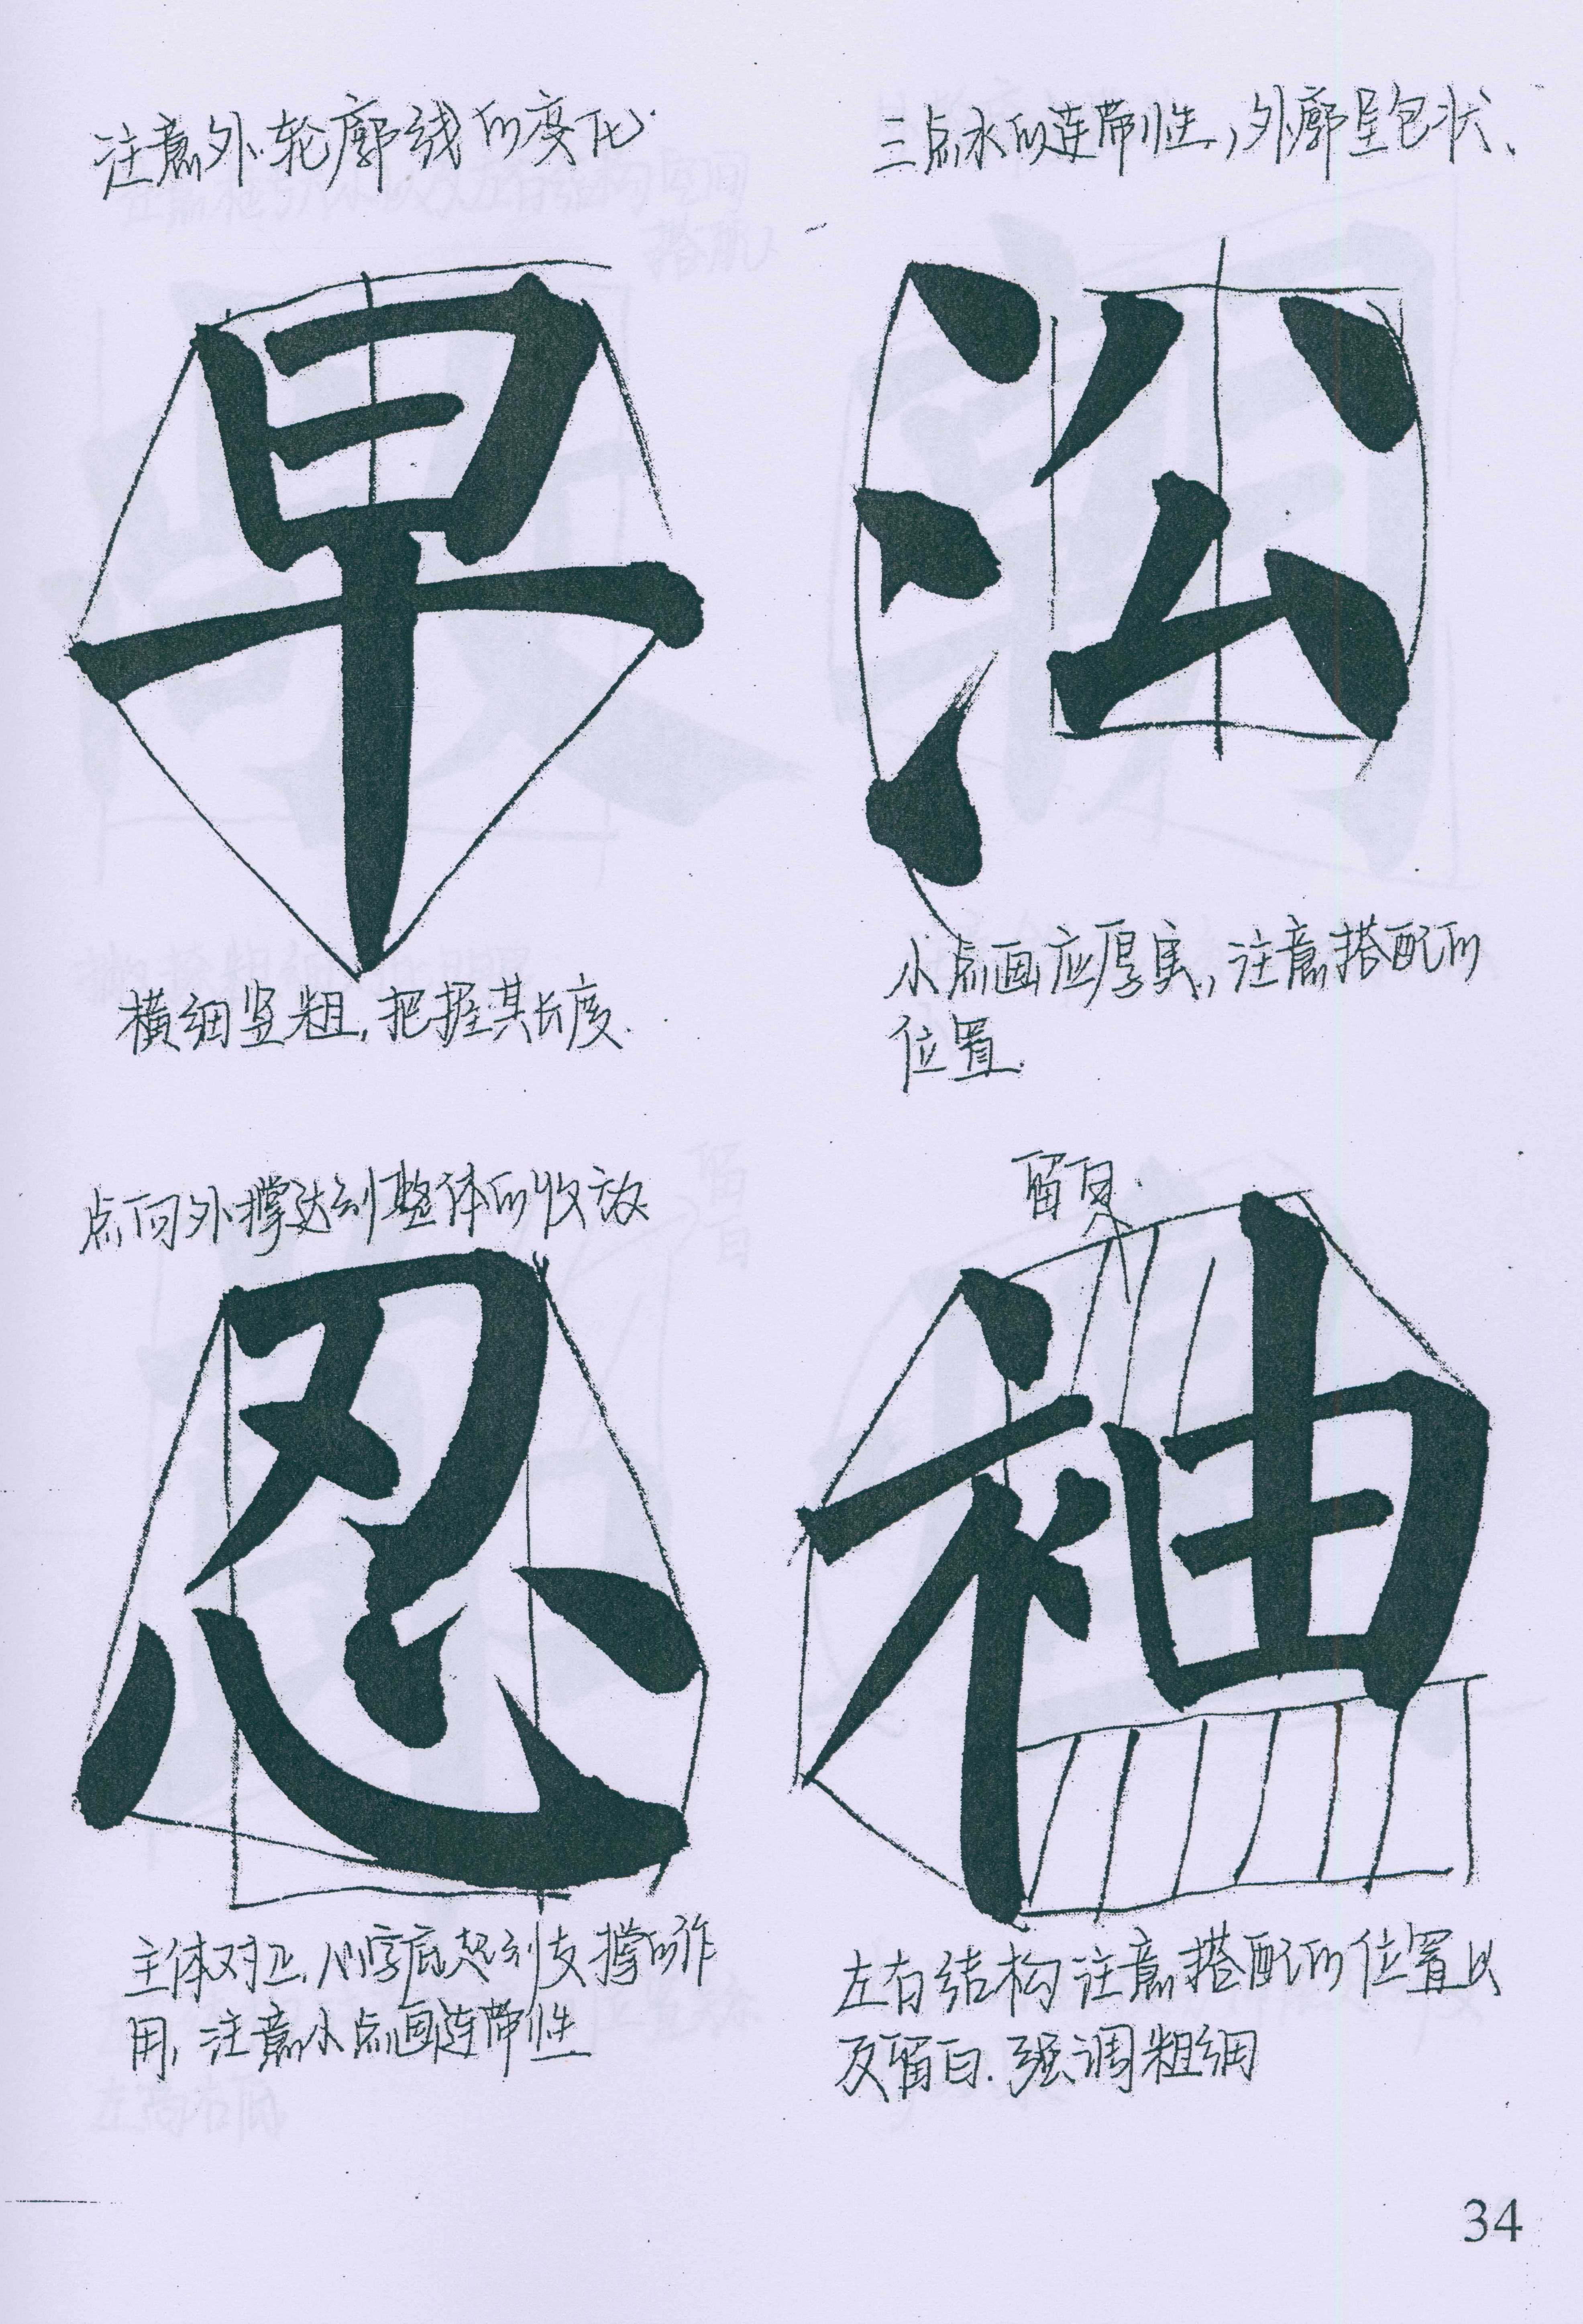 注意外轮廓线的变化.
早
横细竖粗,把握其长度.
三点水的连带性,外廓呈包状.
㳂
小点画应厚实,注意搭配的
位置.
点向外撑达到整体的收放
忍
主体对正,心字底起到支撑的作
用,注意小点画连带性
留白.
袖
左右结构注意搭配的位置以
及留白.强调粗细
34